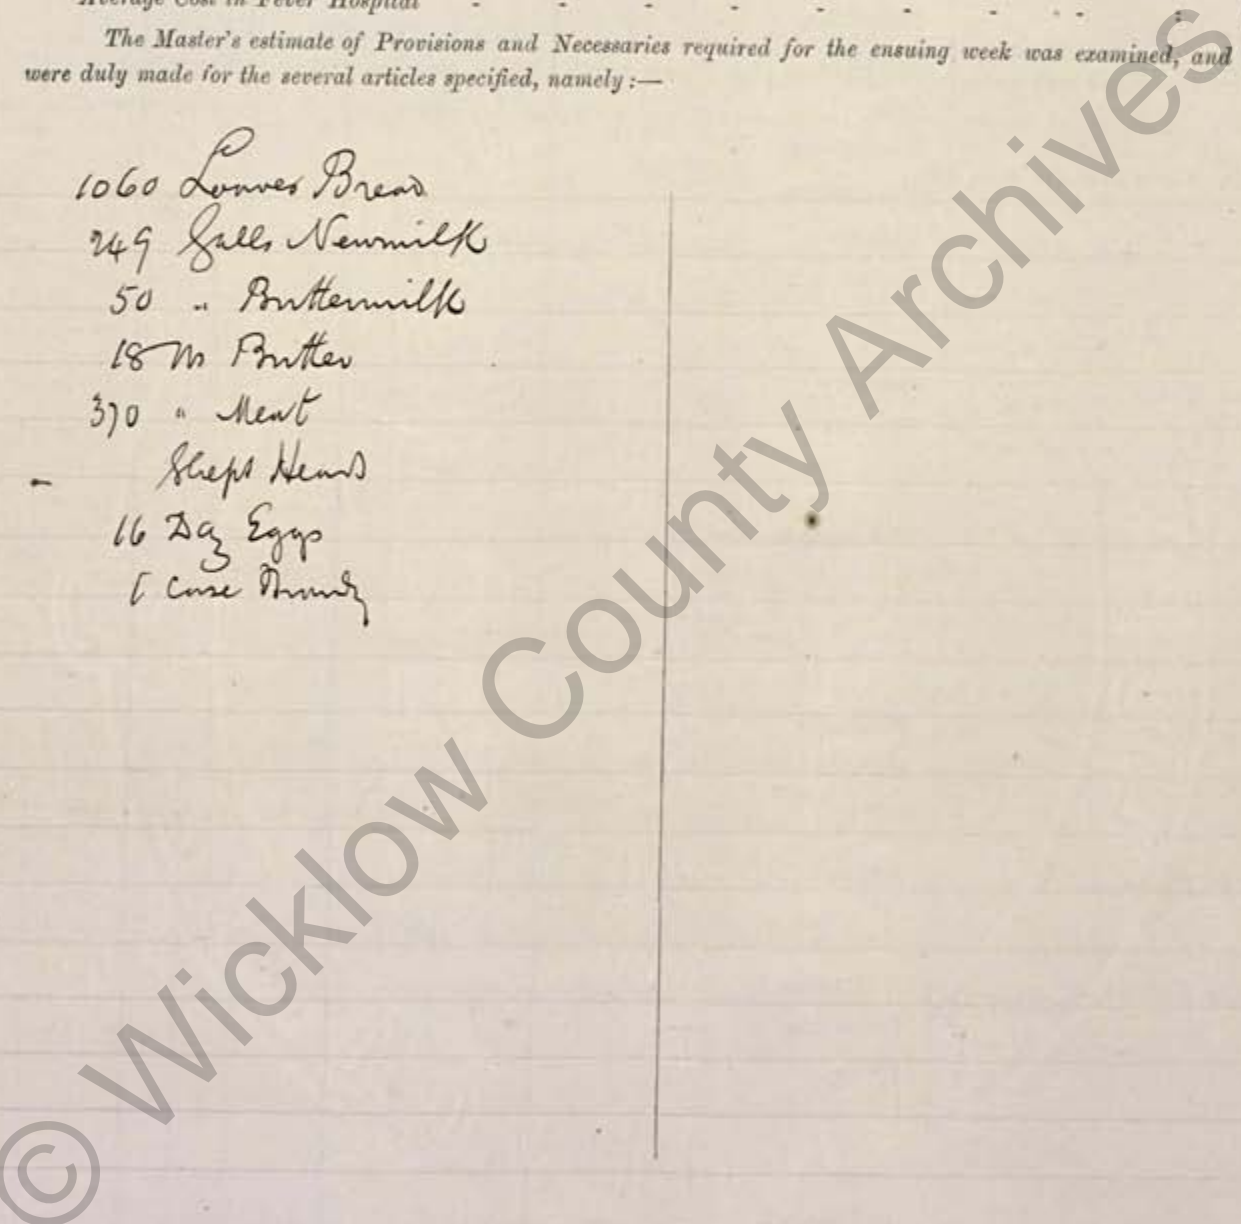 Average Cost in Fever Hospital
The Master's estimate of Provisions and Necessaries required for the ensuing week was examined, and
were duly made for the several articles specified, namely :—
1060 Loaves Bread
249 Galls Newmilk
50 " Buttermilk
18 lbs Butter
370 " Meat
Sheps Heads
16 Doz Eggs
1 Case Brandy
© Wicklow County Archives